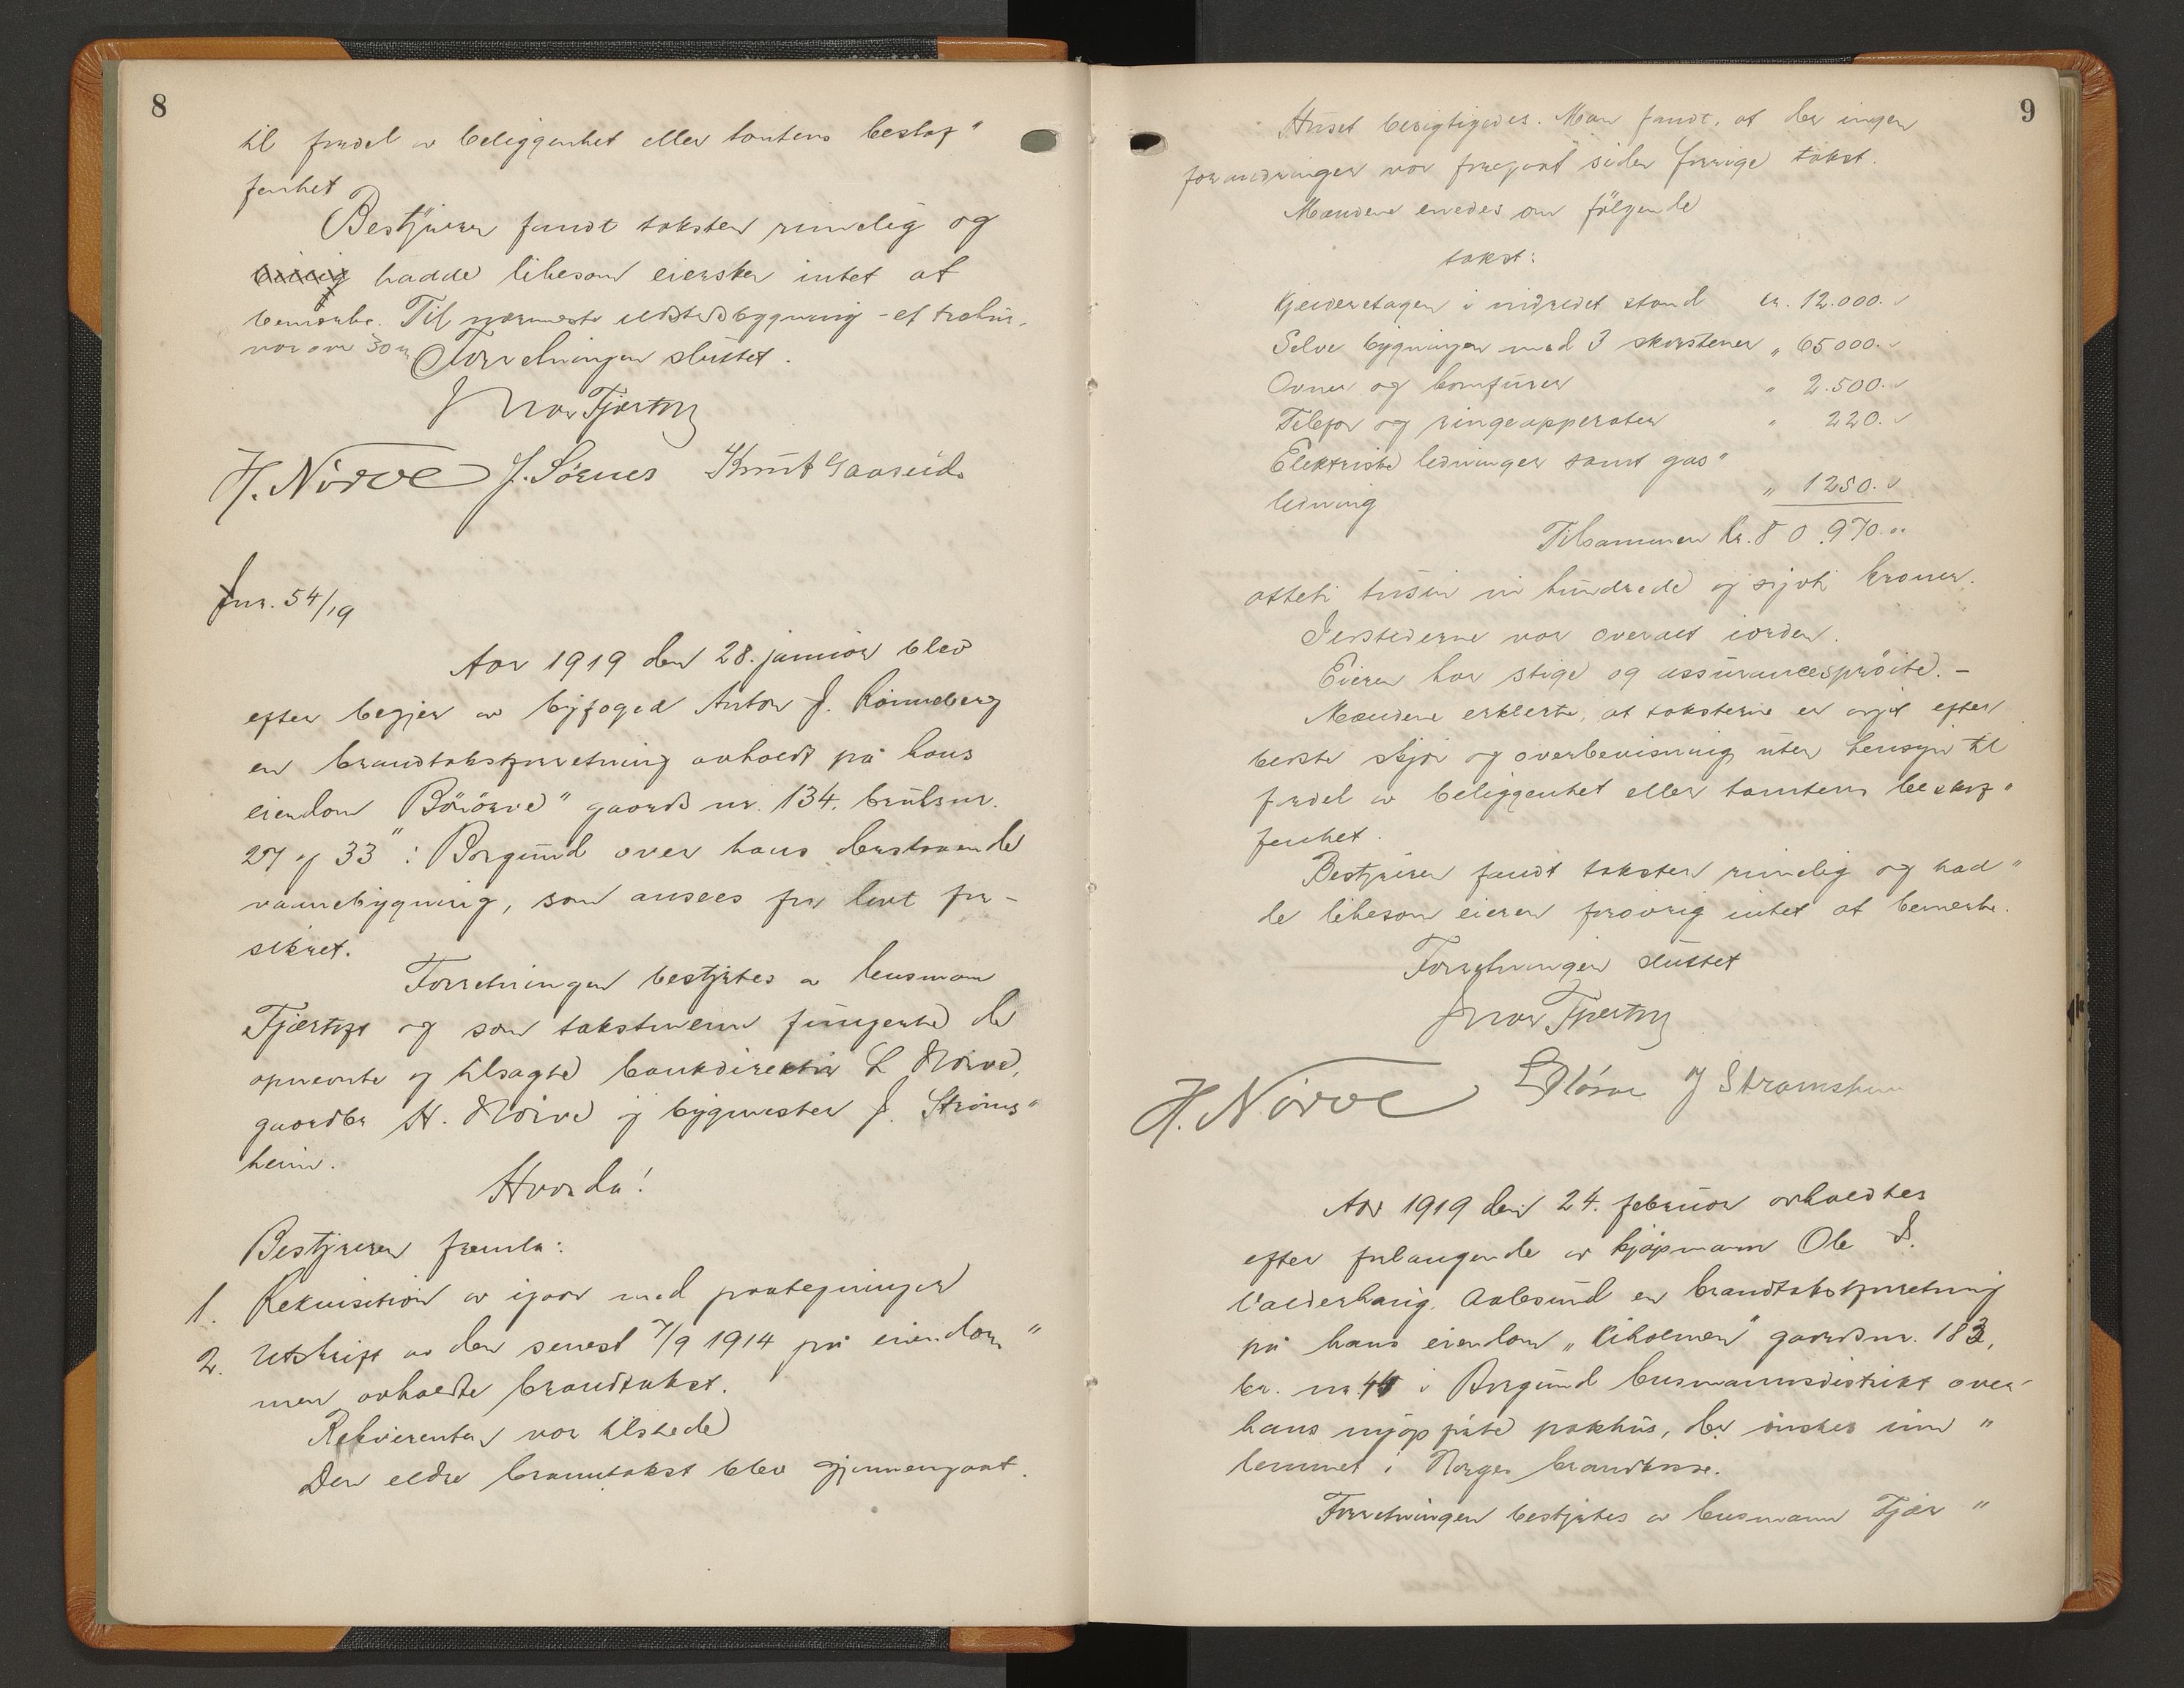 8
til fordel av beliggenhet eller tomtens beskaf"
fenhet
Bestyrer fandt taksten rimelig og
hadde likesom eiersken intet at
bemerke. Til nærmeste ildstedsbygning - et træhus -
var over 30 m
Forretningen sluttet.
Ivar Fjørtoft
H. Nörve J. Sørnes Knut Gaaseide
Jnr. 54/19
Aar 1919 den 28. januar blev
efter begjær av byfoged Anton J. Rönneberg
en brandtakstforretning avholdt på hans
eiendom gaards nr. 134. bruksnr.
27 og 33" i Borgund over hans derstaaende
vaanebygning, som ansees for lovt for-
sikret.
Forretningen bestyrtes av lensmann
Fjørtoft og som takstmenn fungerte de
opnevnte og tilsagte bankdirektör L Nörve,
gaardbr H. Nörve og bygmester J. Ströms"
heim.
Hvorda!
Bestyreren fremla:
1. Rekvisition av igaar med paategninger
2. Utskrift av den senest 7/9 1914 på eiendom"
men avholdte brandtakst.
Rekvirenten var tilstede
Den eldre branntakst blev gjennemgaat.
9
Huset besigtigedes. Man fandt, at der ingen
forandringer var foregaat siden forrige takst.
Mændene enedes om følgende
takst:
Kjelderetagen i indredet stand kr. 12.000.
Selve bygningen med 3 skorstener " 65000.
Ovner og komfurer " 2.500.
Telefon og ringeapparater " 220.
Elektriske ledninger samt gas"
ledning " 1250.
Tilsammen kr. 80.970.
otteti tusin ni hundrede og sytti kroner.
Ildstederne var overalt iorden.
Eieren har stige og assurancesprøite. -
Mændene erklerte, at taksterne er avgit efter
beste skjøn og overbevisning uten hensyn til
fordel av beliggenhet eller tomtens beskaf"
fenhet.
Bestyrer fandt taksten rimelig og had"
de likesom eieren forøvrig intet at bemerke.
Forretningen sluttet
Ivar Fjørtoft
H. Nörve L Nörve J Strømsheim
Aar 1919 den 24. februar avholdtes
efter forlangende av kjøpmann Ole S.
Valderhaug, Aalesund en brandtakstforretning
på hans eiendom "Kiholmen" gaardsnr. 183,
br. nr 44 i Borgund lensmannsdistrikt over
hans nyopførte pakhus, der ønskes inn"
lemmet i Norges brandkasse.
Forretningen bestyrtes av lensmann Fjør"